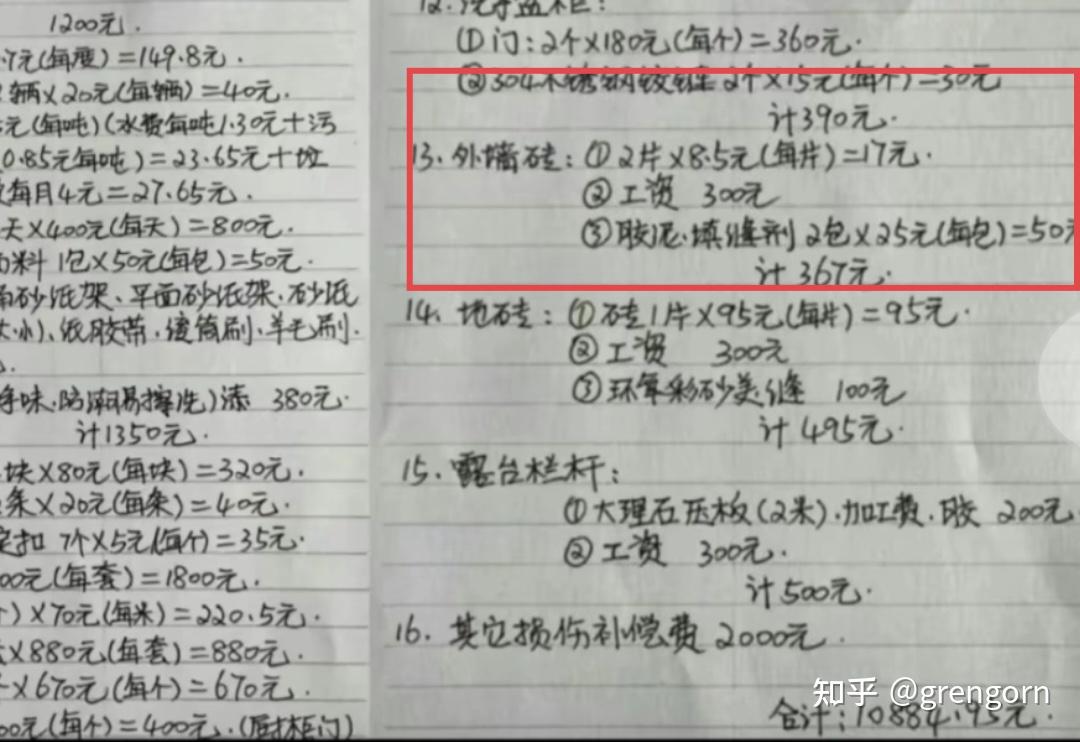 1200元.
.7元(每度)=149.8元.
辆×20元(每辆)=40元.
元(每吨)(水费每吨1.30元十污
0.85元每吨)=23.65元十垃
每月4元=27.65元.
天×400元(每天)=800元.
料 1包×50元(每包)=50元.
砂纸架、平面砂纸架、砂纸
小)、纸胶带、滚筒刷、羊毛刷.
净味、防潮易擦洗)漆 380元.
计1350元.
块×80元(每块)=320元.
条×20元(每条)=40元.
扣 7个×5元(每个)=35元.
00元(每套)=1800元.
)×70元(每米)=220.5元.
×880元(每套)=880元.
×670元(每个)=670元.
00元(每个)=400元.(厨柜门)
12.洗手盆柜:
①门:2个×180元(每个)=360元.
②304不锈钢铰链2个×15元(每个)=30元
计390元.
13.外墙砖:①2片×8.5元(每片)=17元.
②工资 300元
③胶泥.填缝剂 2包×25元(每包)=50元
计367元.
14.地砖:①砖1片×95元(每片)=95元.
②工资 300元
③环氧彩砂美缝 100元
计495元.
15.露台栏杆:
①大理石压板(2米).加工费.胶 200元
②工资 300元.
计500元.
16.其它损伤补偿费2000元.
合计:10884.95元.
知乎 @grengorn